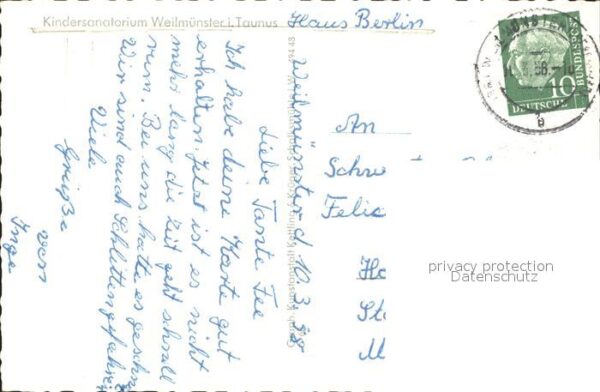 Kindersanatorium Weilmünster i. Taunus Haus Berlin
Weilmünster d. 10.3.58
Liebe Tante Fee
Ich habe deine Karte gut
erhalten. Jetzt ist es nicht
mehr lang die Zeit geht schnell
rum. Bei uns hatte es geschn
Wir sind auch Schlittengefahre
Viele
Grüße
von
Inge
An
Schw
Felic
Ha
St
M
DEUTSCHE
BUNDESPOST
10
b
privacy protection
Datenschutz